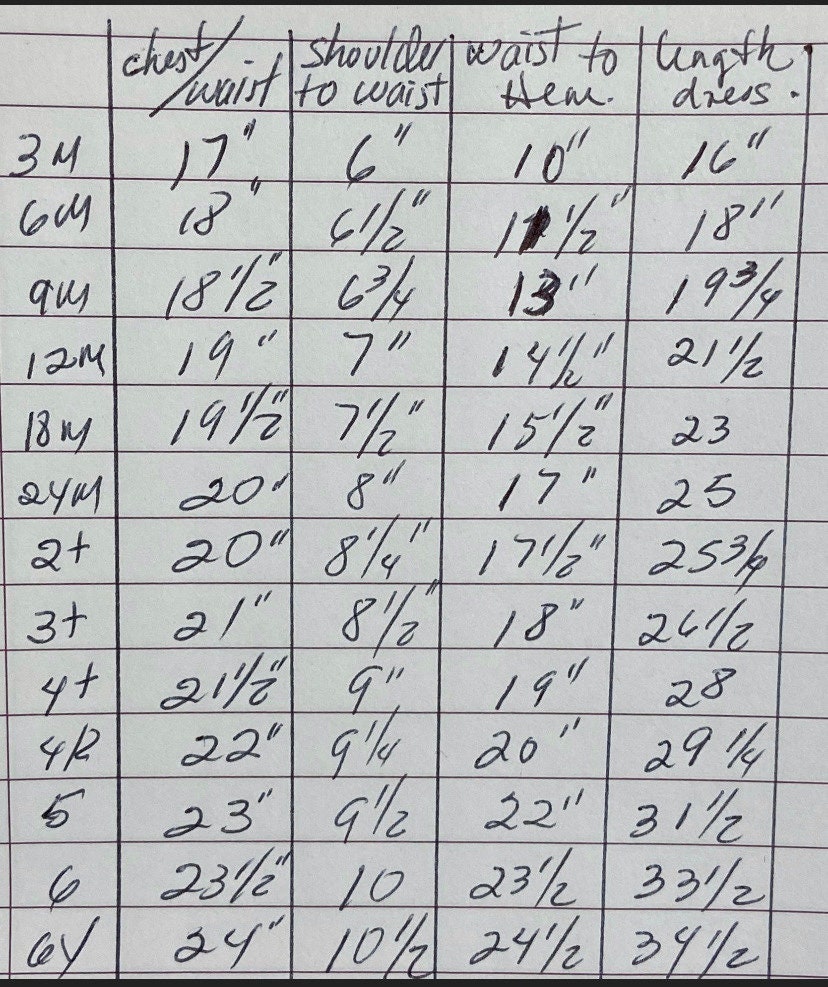 chest/waist shoulder to waist waist to Hem. length dress.
3M 17" 6" 10" 16"
6M 18" 6 1/2" 11 1/2" 18"
9M 18 1/2" 6 3/4 13" 19 3/4
12M 19" 7" 14 1/2" 21 1/2
18M 19 1/2" 7 1/2" 15 1/2" 23
24M 20" 8" 17" 25
2t 20" 8 1/4" 17 1/2" 25 3/4
3t 21" 8 1/2" 18" 26 1/2
4t 21 1/2" 9" 19" 28
4R 22" 9 1/4 20" 29 1/4
5 23" 9 1/2 22" 31 1/2
6 23 1/2" 10 23 1/2 33 1/2
6Y 24" 10 1/2 24 1/2 34 1/2